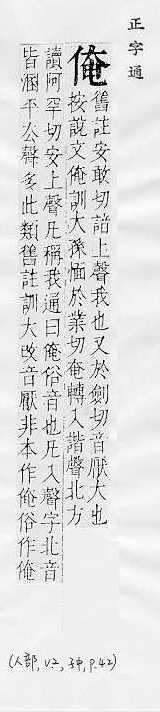 正字通
俺
舊註安敢切諳上聲我也又於劍切音厭大也
按說文俺訓大孫愐於業切奄轉入諧聲北方
讀阿罕切安上聲凡稱我通曰俺俗音也凡入聲字北音
皆溷平厺聲多此類舊註訓大改音厭非本作俺俗作俺
(人部, v.2, p.42)